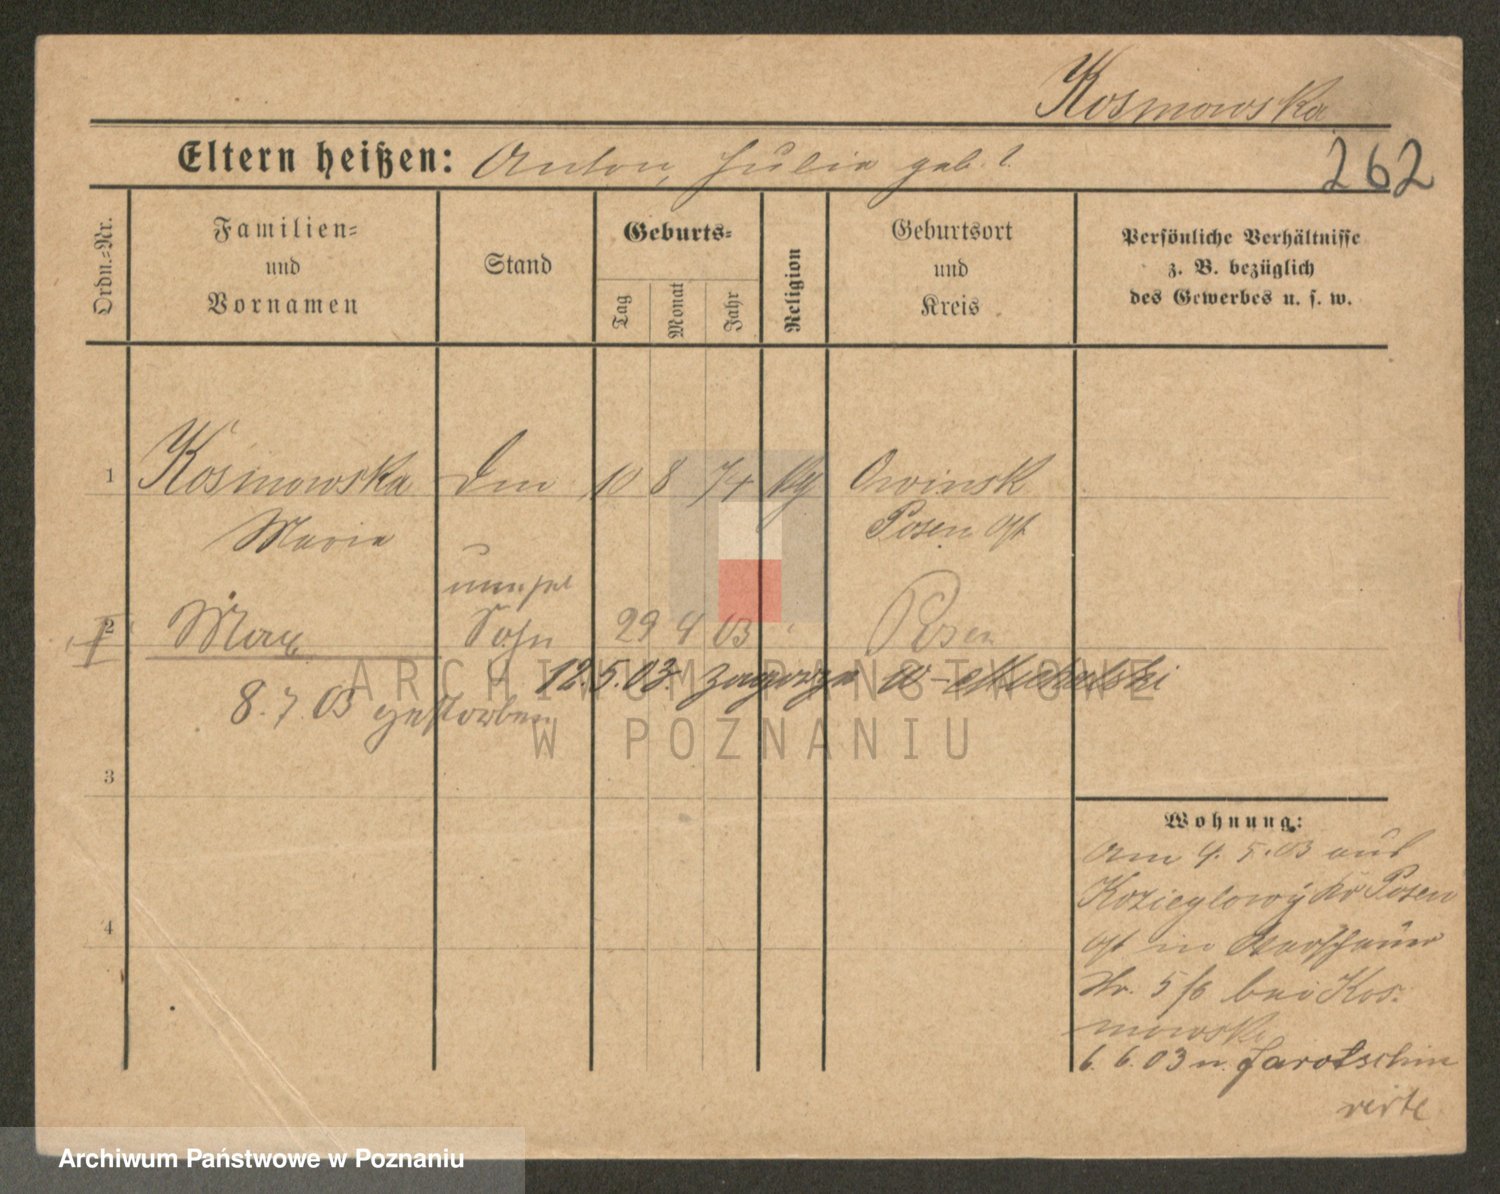 Kosmowska
262
Eltern heißen: Anton, Julia geb. ?
Ordn.-Nr.
Familien-
und
Vornamen
Stand
Geburts-
Tag
Monat
Jahr
Religion
Geburtsort
und
Kreis
Persönliche Verhältnisse
z. B. bezüglich
des Gewerbes u. s. w.
1 Kosmowska 10 8 74 Owinsk
Maria Posen Ost
2 Max Sohn 29 4 03 Posen
12.5.03. Zagorze
8.7.03 gestorben
3
4
Wohnung:
Am 9.5.03 aus
Kozieglowy Kr Posen
Ost in Warschauer
Str. 5/6 bei Kos-
mowski
6.6.03 n. Jarotschin
ARCHIWUM PAŃSTWOWE
W POZNANIU
Archiwum Państwowe w Poznaniu